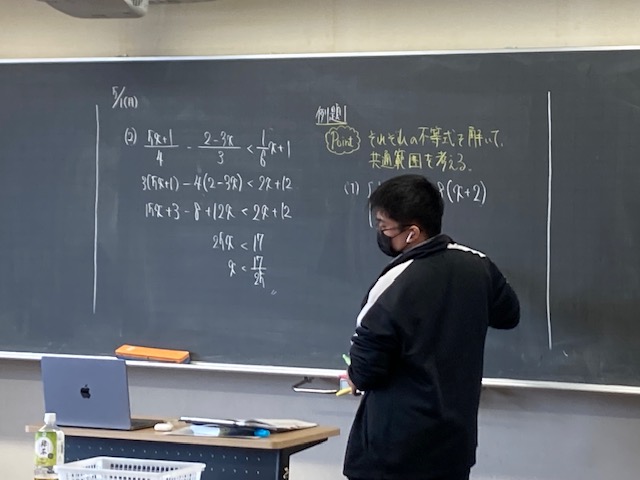 5/1(月)
(2) (5x+1)/4 - (2-3x)/3 < 1/6 x+1
3(5x+1) - 4(2-3x) < 2x+12
15x+3 - 8+12x < 2x+12
25x < 17
x < 17/25
例題1
Point それぞれの不等式を解いて、
共通範囲を考える。
(1)
8(x+2)